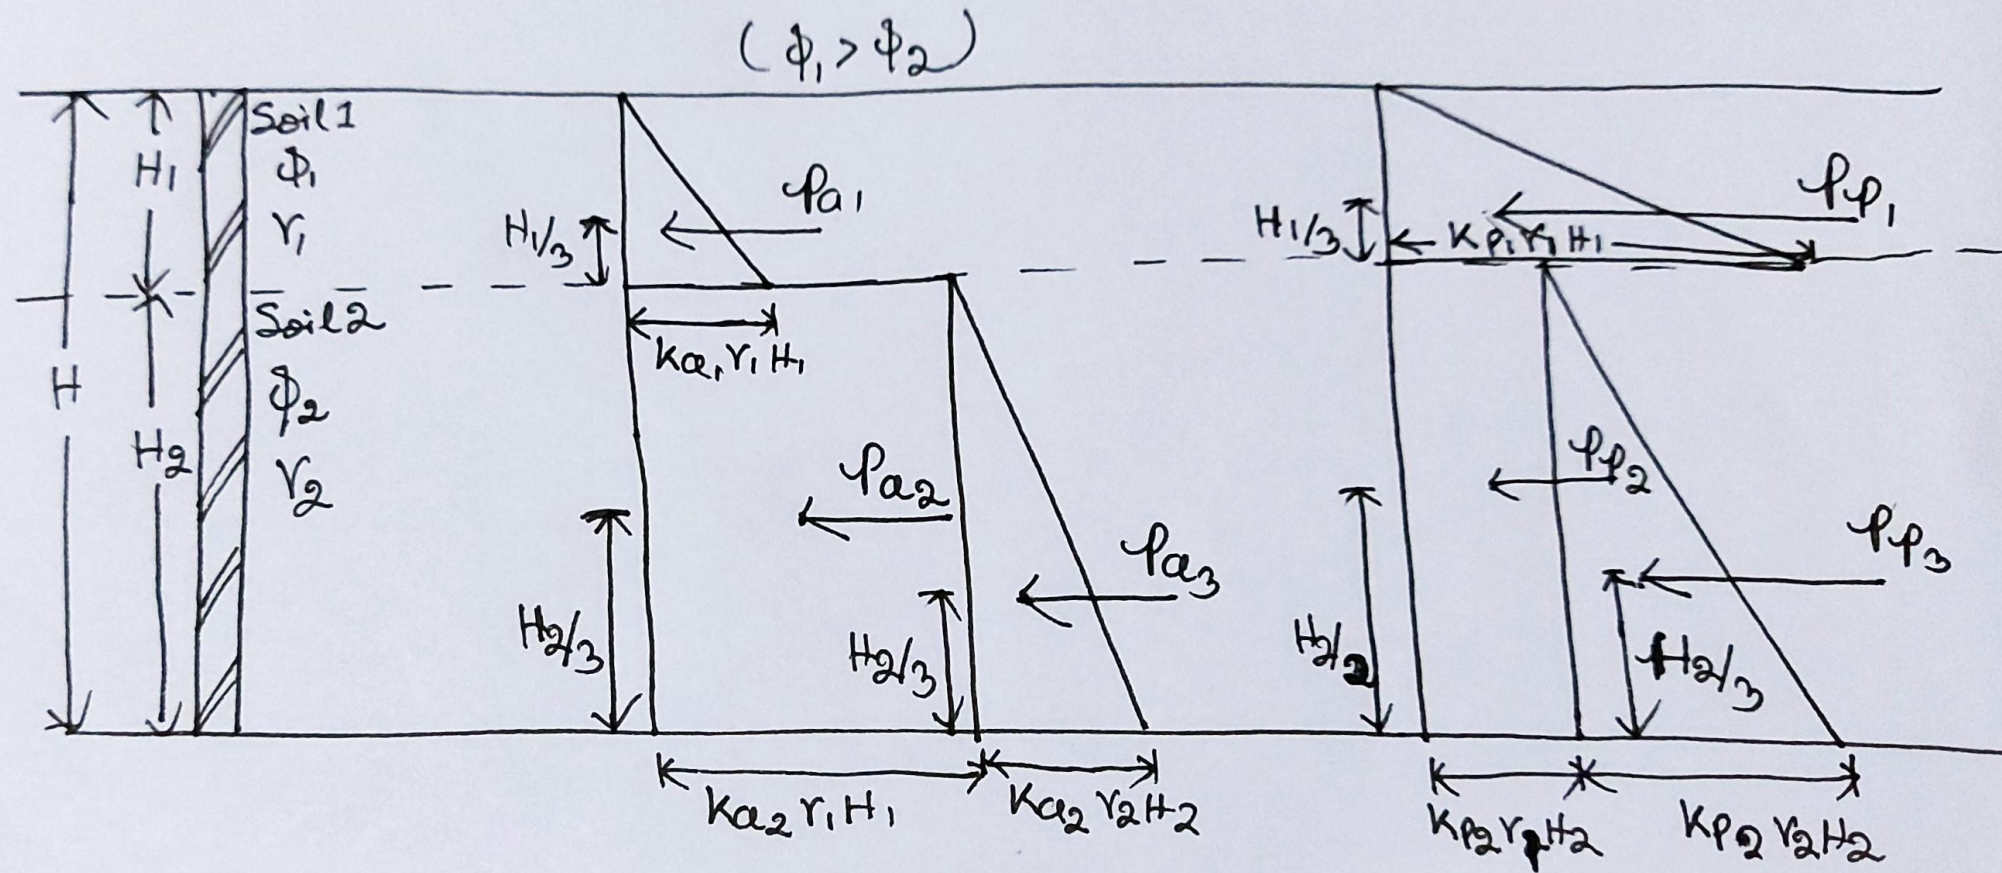 (ϕ₁ > ϕ₂)
Soil 1
ϕ₁
γ₁
H₁
H
Soil 2
ϕ₂
γ₂
H₂
Pa₁
H₁/3
Ka₁γ₁H₁
Pa₂
Pa₃
H₂/3
H₂/3
Ka₂γ₁H₁
Ka₂γ₂H₂
Pp₁
H₁/3
Kp₁γ₁H₁
Pp₂
Pp₃
H₂/2
H₂/3
Kp₂γ₂H₂
Kp₂γ₂H₂